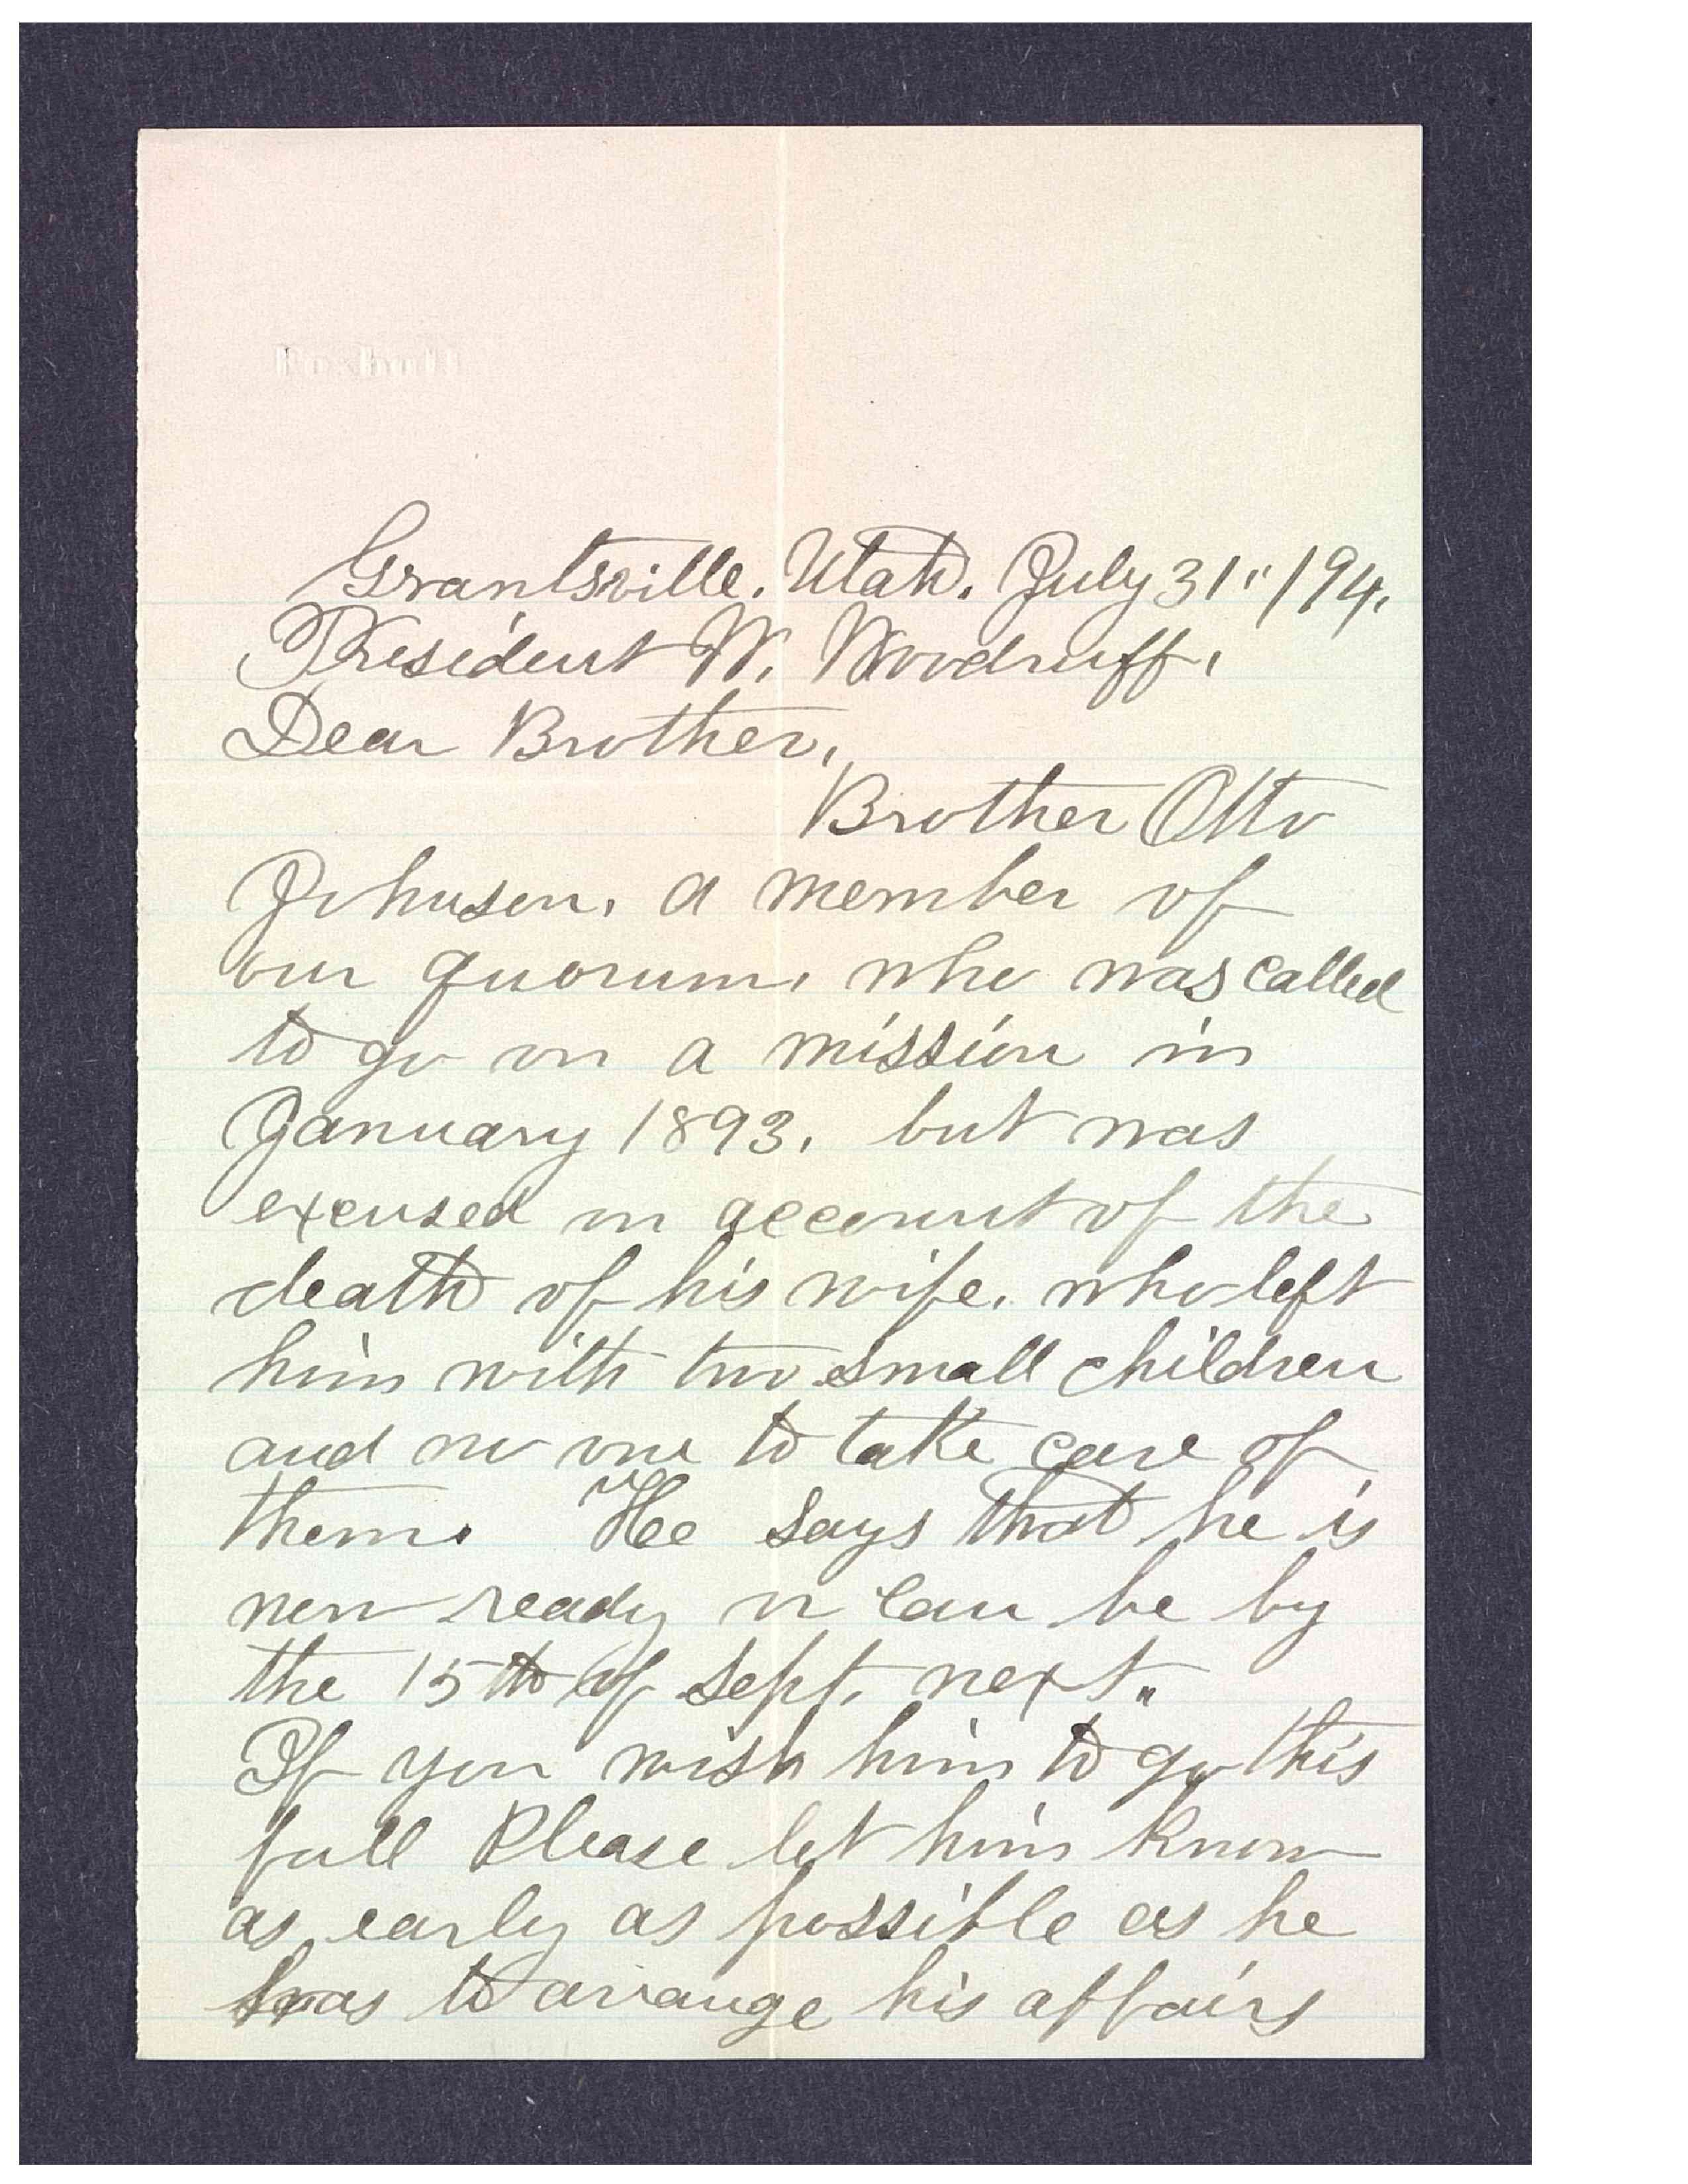 Grantsville. Utah. July 31"/94.
President W. Woodruff.
Dear Brother,
Brother Otto
Johnson, a member of
our quorum, who was called
to go on a mission in
January 1893, but was
excused on account of the
death of his wife, who left
him with two small children
and no one to take care of
them. He says that he is
now ready or can be by
the 15th of Sept. next.
If you wish him to go this
fall Please let him know
as early as possible as he
has to arrange his affairs